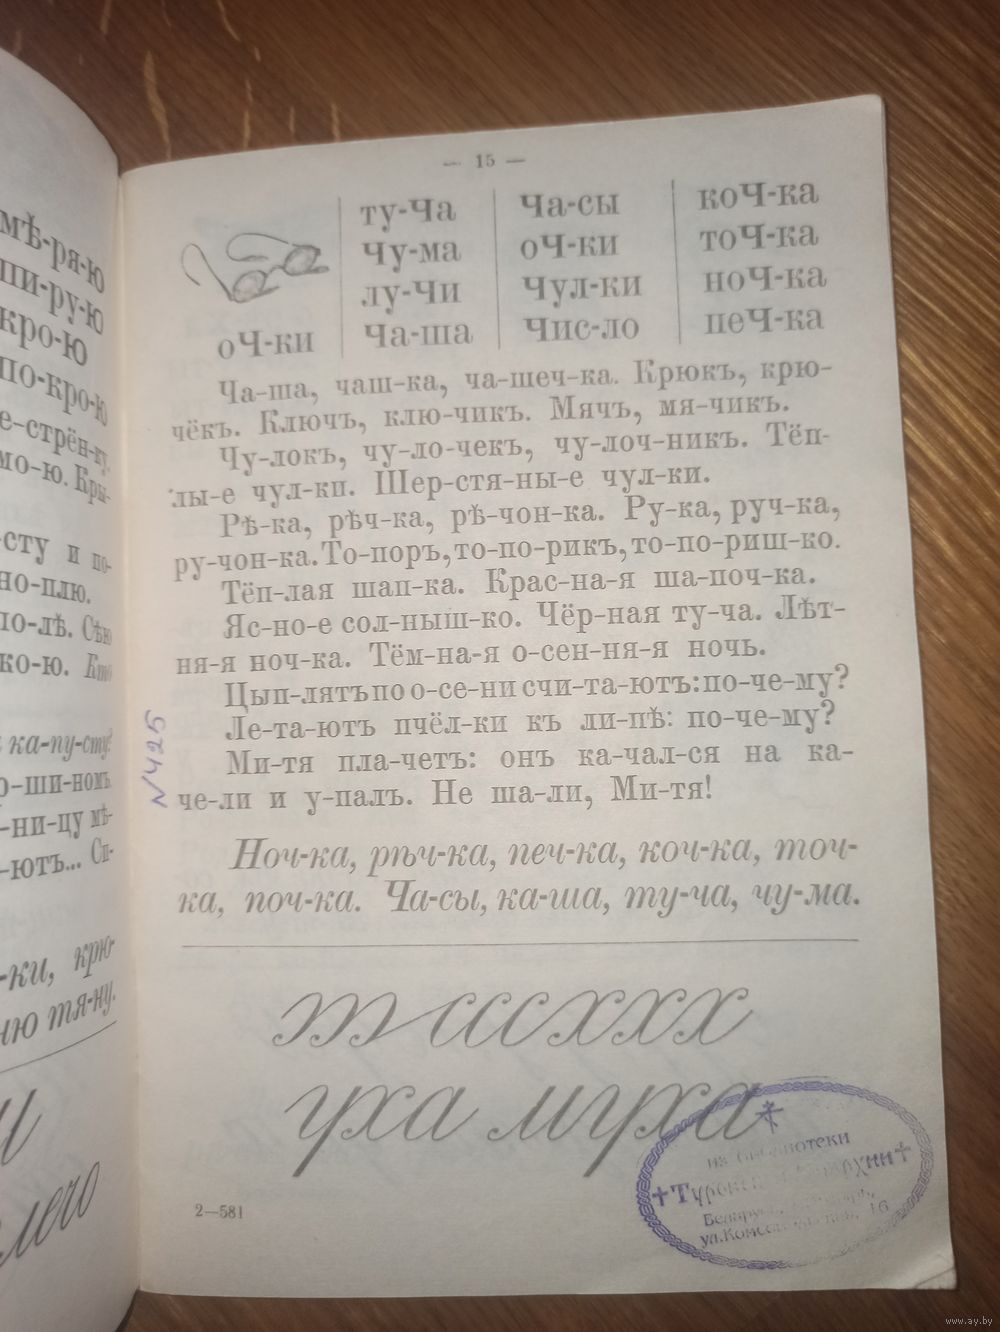 мѣ-ря-ю
пи-ру-ю
кро-ю
по-кро-ю
мо-ю. Кры-
-сту и по-
но-плю.
по-лѣ. Сѣю
ко-ю. Кто
ка-пу-сту?
-ши-номъ
-ни-цу мѣ-
-ютъ... Сп-
-ки, крю-
ню тя-ну.
— 15 —
оЧ-ки
ту-Ча
Чу-ма
лу-Чи
Ча-ша
Ча-сы
оЧ-ки
Чул-ки
Чис-ло
коЧ-ка
тоЧ-ка
ноЧ-ка
пеЧ-ка
Ча-ша, чаш-ка, ча-шеч-ка. Крюкъ, крю-
чёкъ. Ключъ, клю-чикъ. Мячъ, мя-чикъ.
Чу-локъ, чу-ло-чекъ, чу-лоч-никъ. Тёп-
лы-е чул-ки. Шер-стя-ны-е чул-ки.
Рѣ-ка, рѣч-ка, рѣ-чон-ка. Ру-ка, руч-ка,
ру-чон-ка. То-поръ, то-по-рикъ, то-по-риш-ко.
Тёп-лая шап-ка. Крас-на-я ша-поч-ка.
Яс-но-е сол-ныш-ко. Чёр-ная ту-ча. Лѣт-
ня-я ноч-ка. Тём-на-я о-сен-ня-я ночь.
Цып-лятъ по о-се-ни счи-та-ютъ: по-че-му?
Ле-та-ютъ пчёл-ки къ ли-пѣ: по-че-му?
Ми-тя пла-четъ: онъ ка-чал-ся на ка-
че-ли и у-палъ. Не ша-ли, Ми-тя!
Ноч-ка, рѣч-ка, печ-ка, коч-ка, точ-
ка, поч-ка. Ча-сы, ка-ша, ту-ча, чу-ма.
э э ссс х х х
уха муха
2—581
№425
из библиотеки
ул.
16
www.ay.by